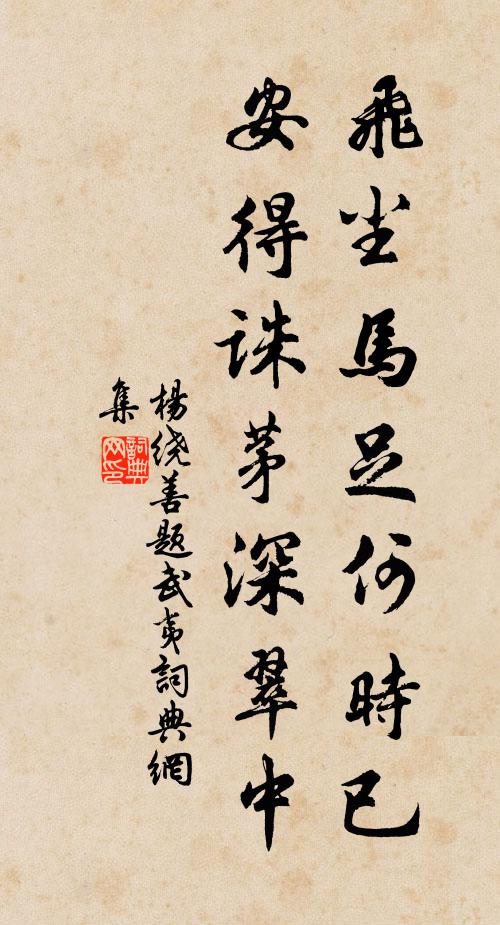 飛尘馬足何時已
安得誅茅深翠中
楊繞善題武夷詞典網
集
詞典网印